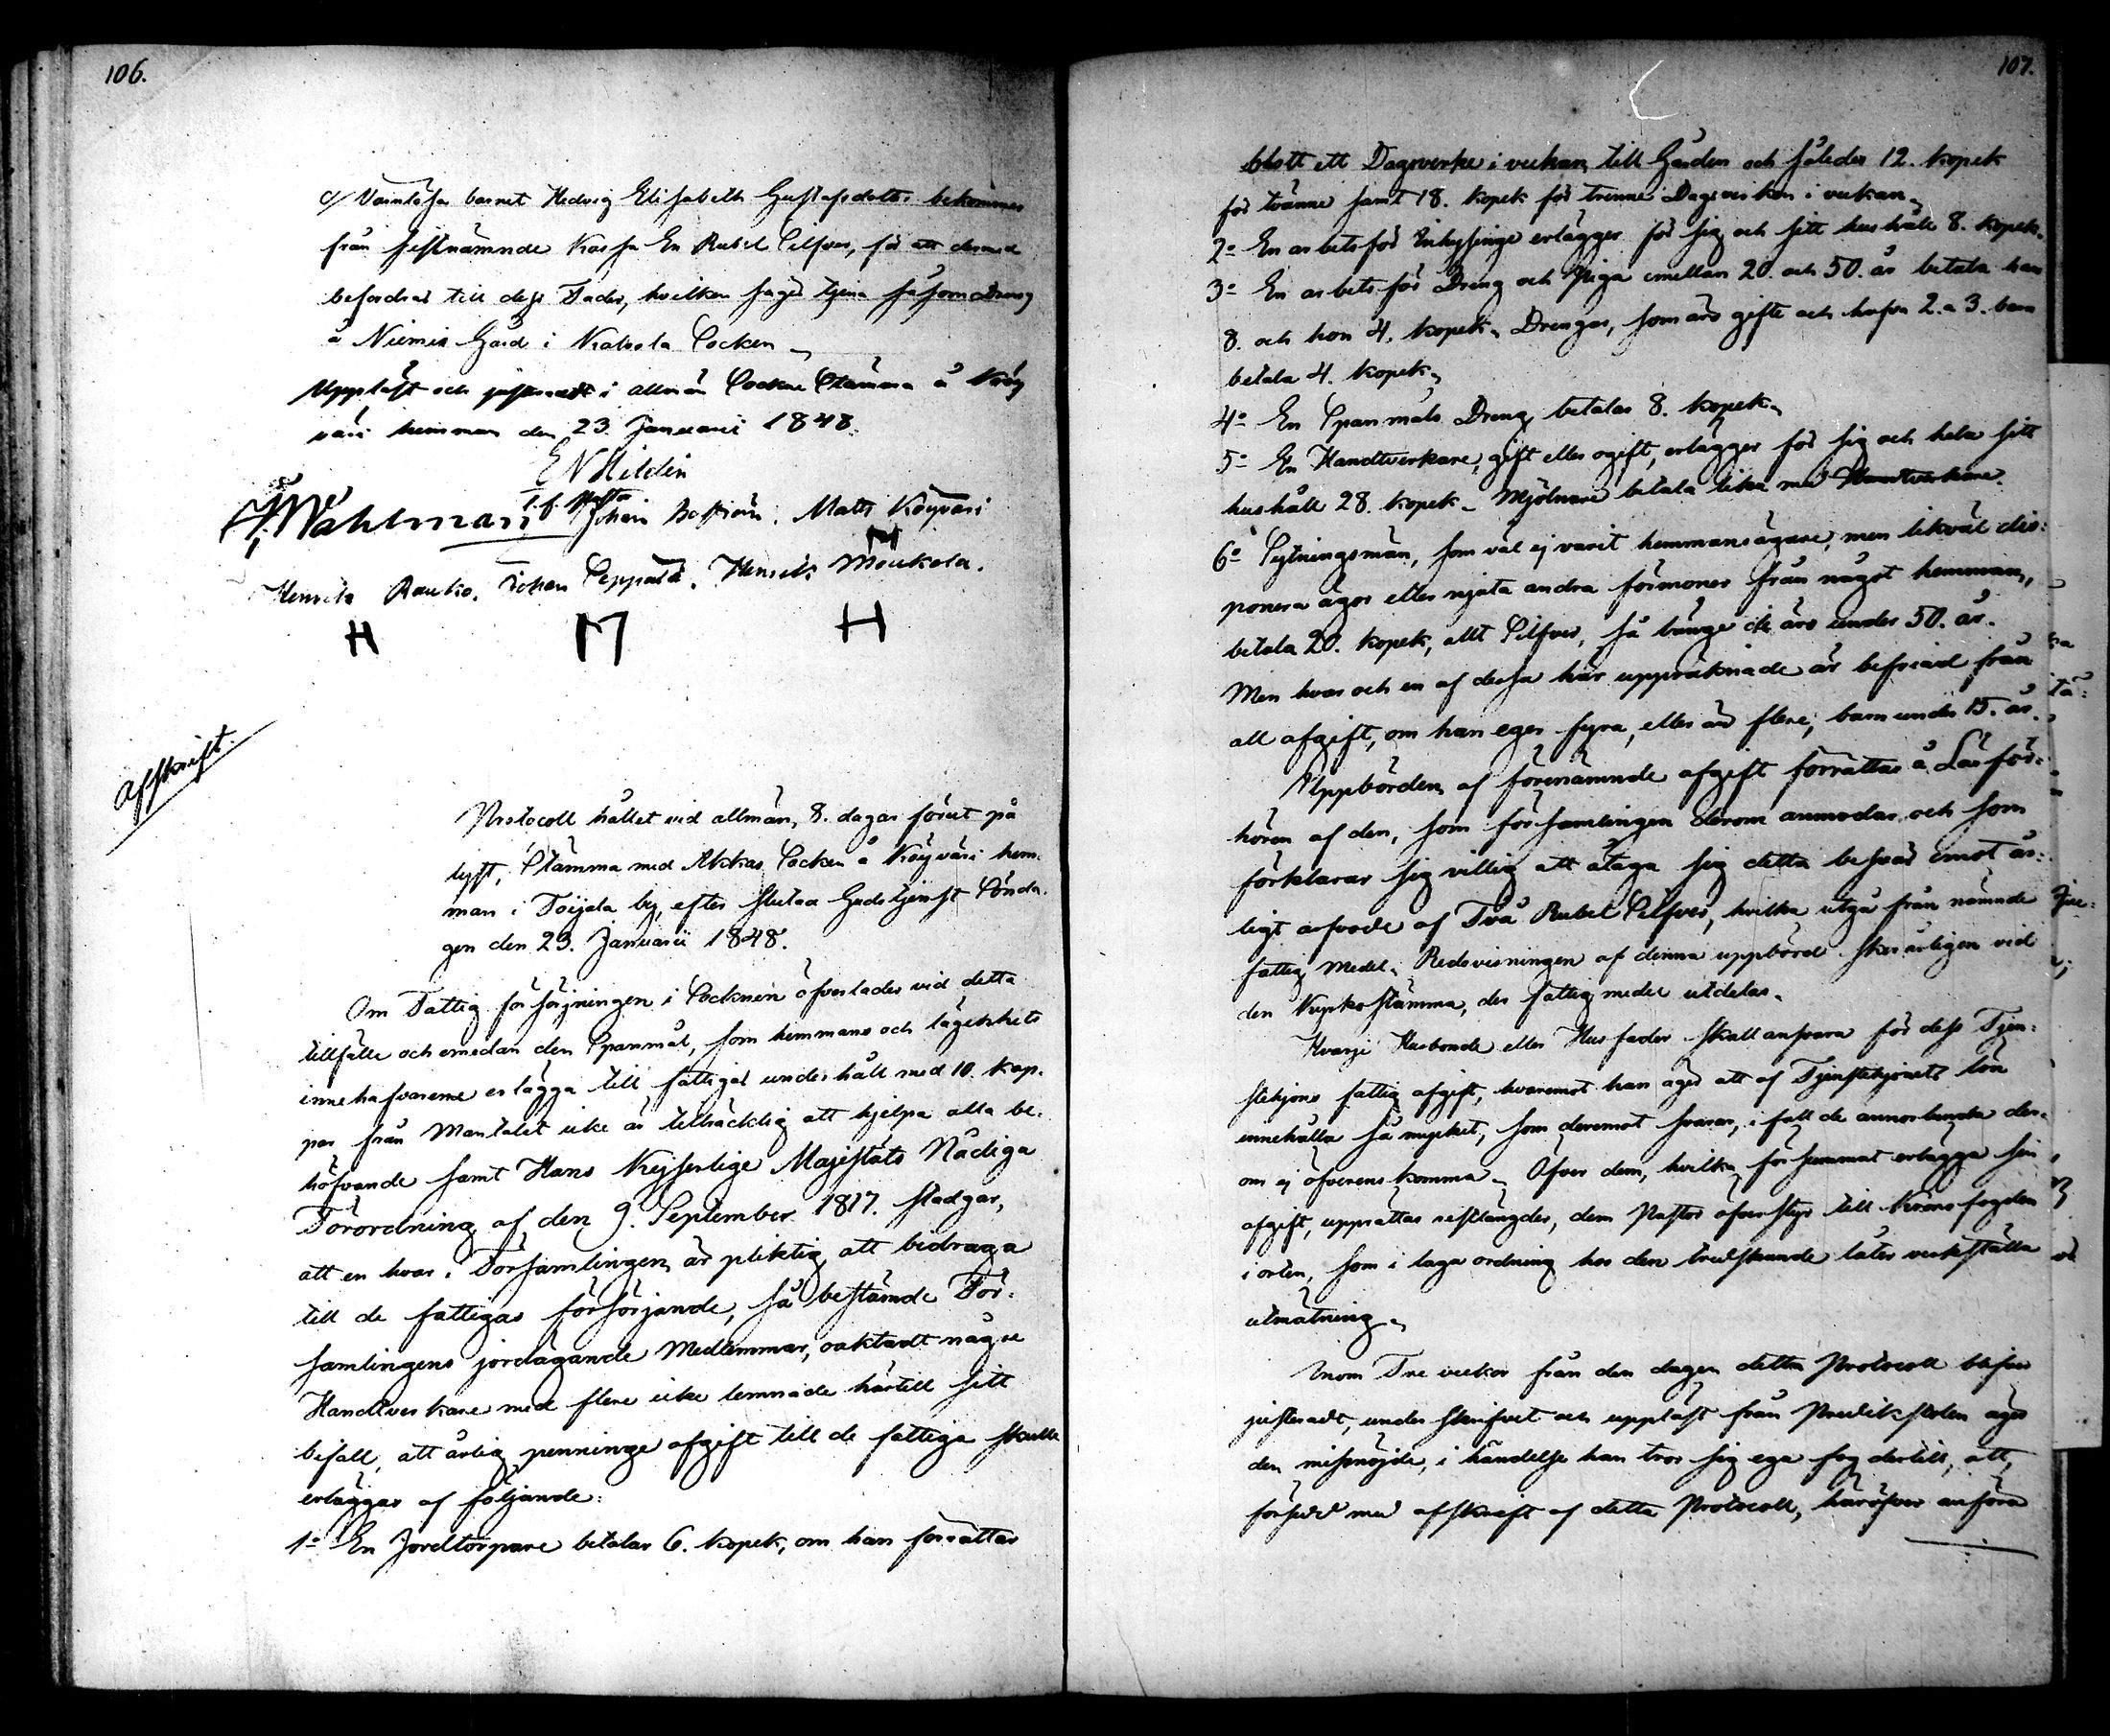 106.
c/ Värnlösa barnet Hedvig Elisabeth Gustafsdotter bekommer
från sistnämnde Kassa En Rubel Silfver, för att dermed
befordras till dess Fader, hvilken säges tjena såsom Dreng
å Niemis Gård i Kalvola Socken
Uppläst och justeradt i allmän Sockne Stämma å Köy
väri hemman den 23. Januarii 1848.
E N Hildén
t. f. Pastor
Wahlman Johan Boström. Matts Köyväri
Henrik Rauko. Johan Seppälä. Henrik Moukola.
H M H
Afskrift.
Protocoll hållet vid allmän, 8. dagar förut på
lyst, Stämma med Akkas Socken å Köyväri hem-
man i Toijala by, efter slutad Gudstjenst Sönda-
gen den 23. Januarii 1848.
Om Fattig försörjningen i Socknen öfverlades vid detta
tillfälle och emedan den Spanmål, som hemmans och lägenhets
innehafvarene erlägga till fattigas underhåll med 10. kap-
par från Mantalet icke är tillräcklig att hjelpa alla be-
höfvande samt Hans Kejserlige Majestäts Nådiga
Förordning af den 9. September 1817. stadgar,
att en hvar i Församlingen är pliktig att bidraga
till de fattigas försörjande, så bestämde För-
samlingens jordägande Medlemmar, oaktadt någre
Handtverkare med flere icke lemnade härtill sitt
bifall, att årlig penninge afgift till de fattiga skulle
erläggas af följande:
1o En Jordtorpare betalar 6. kopek, om han förrättar
107.
blott ett Dagsverke i veckan till Gården och således 12. kopek
för tvänne samt 18. kopek för trenne Dagsverken i veckan,
2o En arbetsför Inhysinge erlägger för sig och sitt hushåll 8. kopek.
3o En arbetsför Dreng och Piga emellan 20. och 50. år betala han
8. och hon 4. kopek. Drengar, som äro gifte och hafva 2. a 3. barn
betala 4. kopek.
4o En Spanmåls Dreng betalar 8. kopek.
5o En Handtverkare, gift eller ogift, erlägger för sig och hela sitt
hushåll 28. kopek. Mjölnare betala lika med Handtverkare.
6o Sytningsmän, som väl ej varit hemmansägare, men likväl dis-
ponera ägor eller njuta andra förmoner från något hemman,
betala 20. kopek, allt Silfver, så länge de äro under 50. år.
Men hvar och en af dessa här uppräknade är befriad från
all afgift, om han eger fyra, eller än flere, barn under 15. år.
Uppbörden af förenämnde afgift förrättas å Läsför-
hören af den, som församlingen derom anmodar och som
förklarar sig villig att åtaga sig detta besvär emot år-
ligt arfvode af Två Rubel Silfver, hvilka utgå från nämnde
fattig Medel. Redovisningen af denna uppbörd sker årligen vid
den Kyrkostämma, der fattig medel utdelas.
Hvarje Husbonde eller Husfader skall ansvara för dess Tjen-
stehjons fattig afgift, hvaremot han äger att af Tjenstehjonets lön
innehålla så mycket, som deremot svarar, i fall de annorlunda der-
om ej öfverenskomma. Öfver dem, hvilka försummat erlägga sin
afgift, upprättas restlängder, dem Pastor öfverstyr till Kronofogden
i orten, som i laga ordning hos den tredskande låter verkställa
utmätning.
Inom Tre veckor från den dagen detta Protocoll blifvit
justeradt, underskrifvet och uppläst från Predikstolen äger
den missnöjde, i händelse han tror sig ega fog dertill, att,
försedd med afskrift af detta Protocoll, häröfver anföra